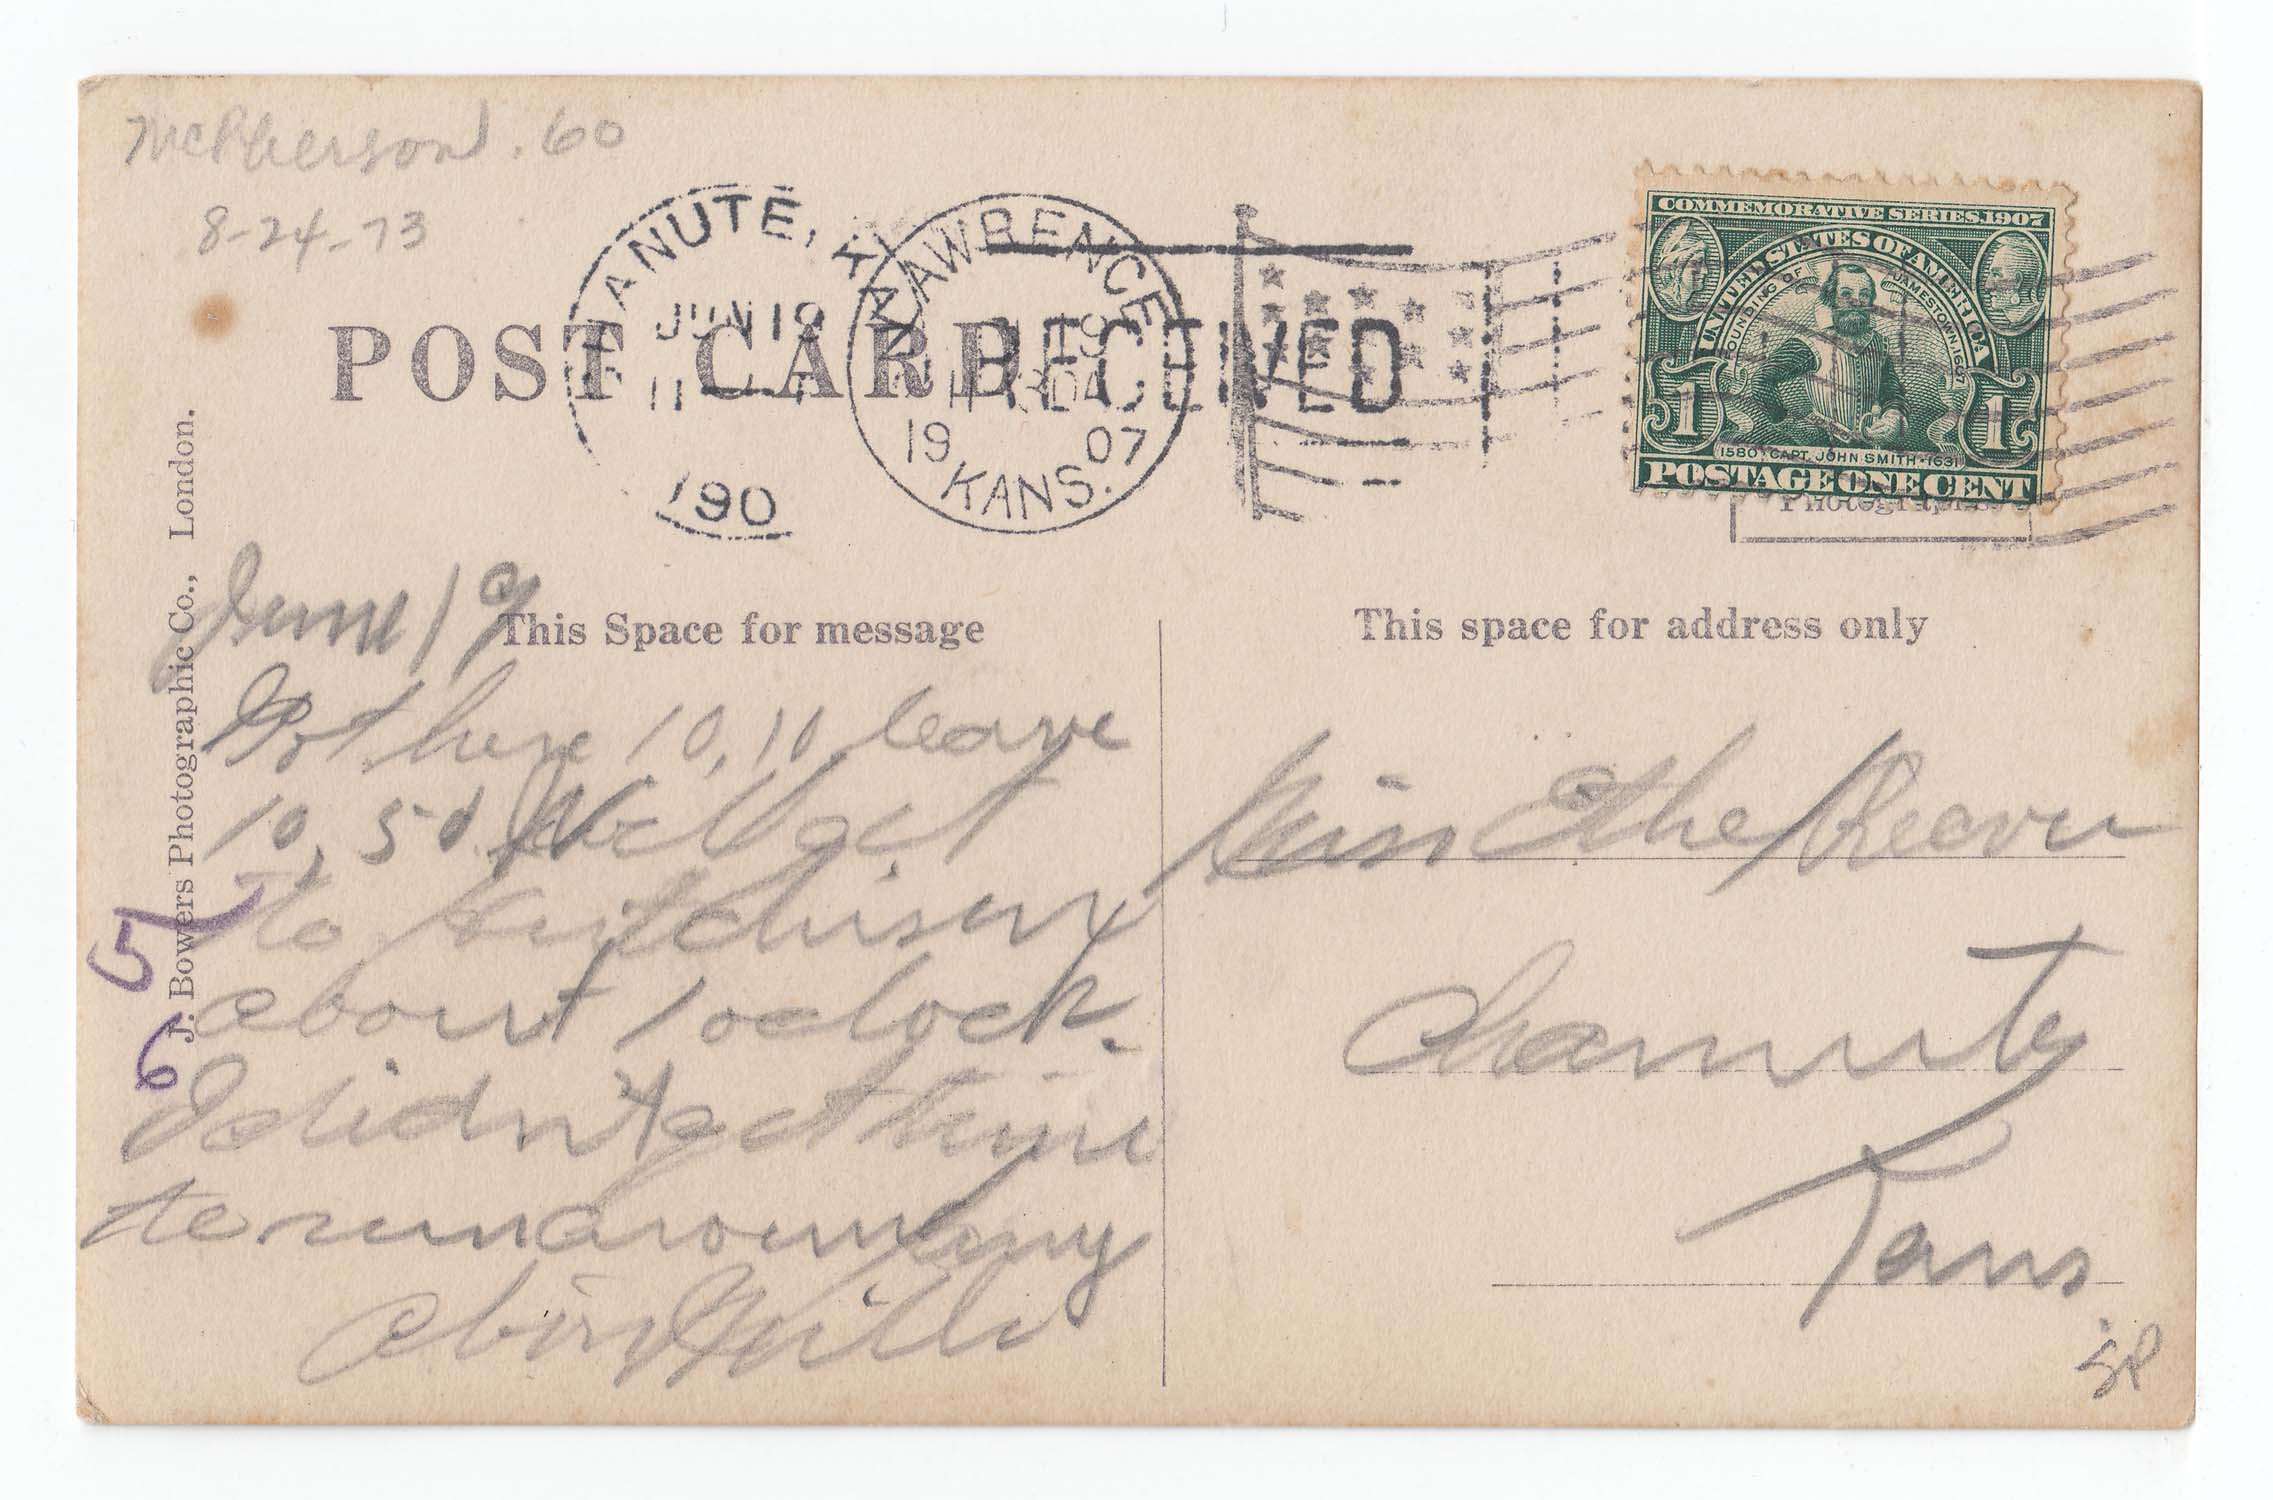 McPherson . 60
8-24-73
CHANUTE, KAN
JUN 19
11
190
RECEIVED
LAWRENCE
19
11 30A
19 07
KANS.
COMMEMORATIVE SERIES, 1907
UNITED STATES OF AMERICA
FOUNDING OF JAMESTOWN, 1607
1 1
1580 · CAPT. JOHN SMITH · 1631
POSTAGE ONE CENT
POST CARD
Photographs.
J. Bowers Photographic Co., London.
This Space for message
This space for address only
June 19
Got here 10,10 leave
10,50 Will get
to
about 1 oclock.
I didn't get time
to run around any
5
6
Miss Ethel Reever
Chanute
Kans